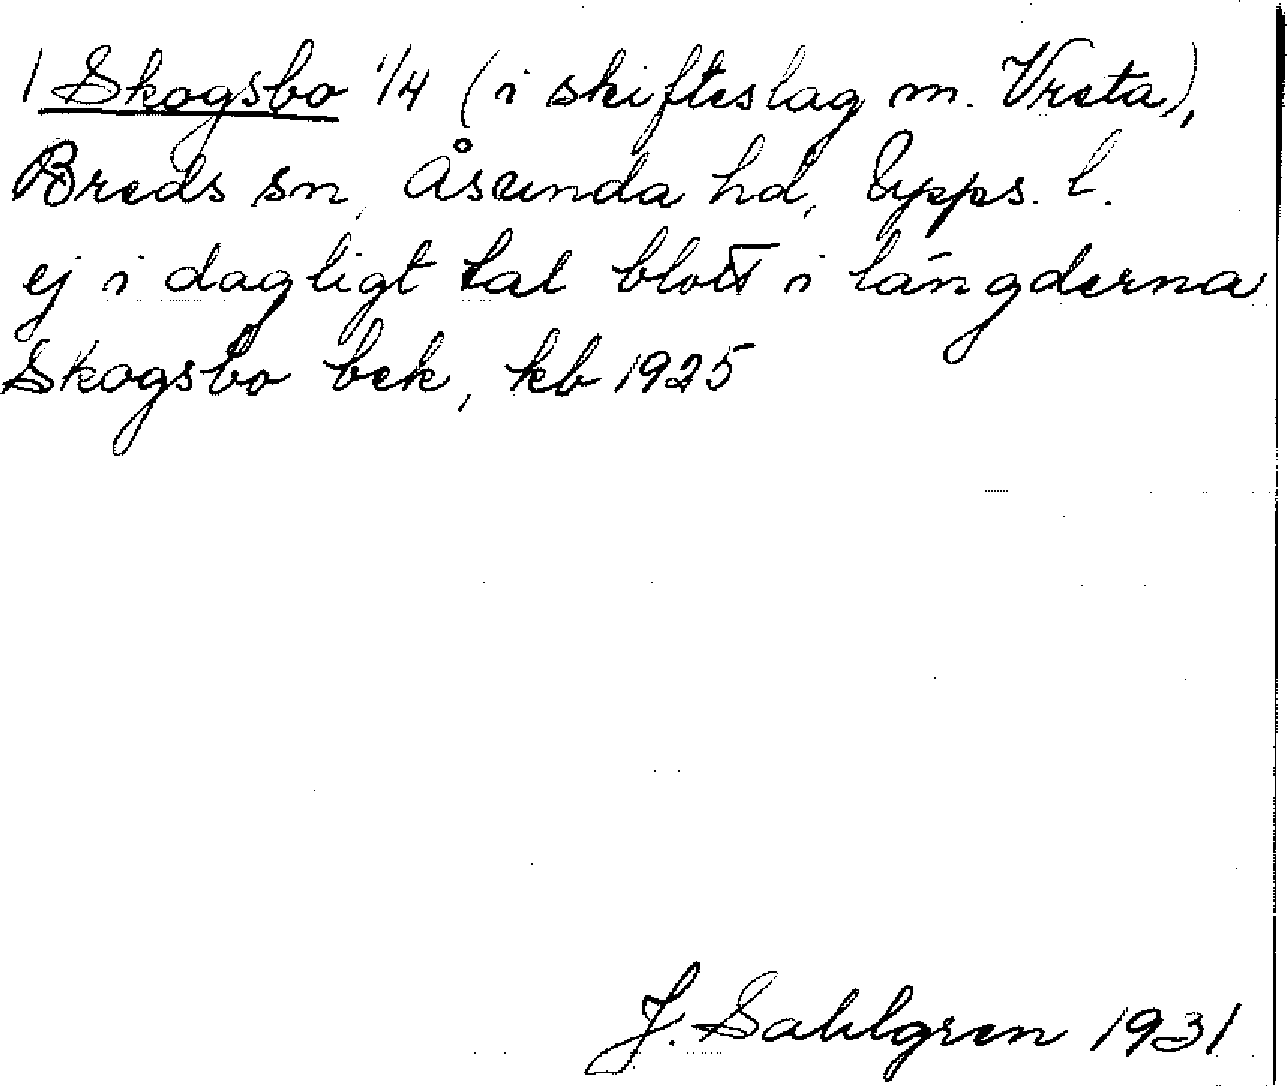 1 Skogsbo 1/4 (i skifteslag m. Vreta),
Breds sn, Åsunda hd, Upps. l.
ej i dagligt tal blott i längderna
Skogsbo bek, kb 1925
J. Sahlgren 1931